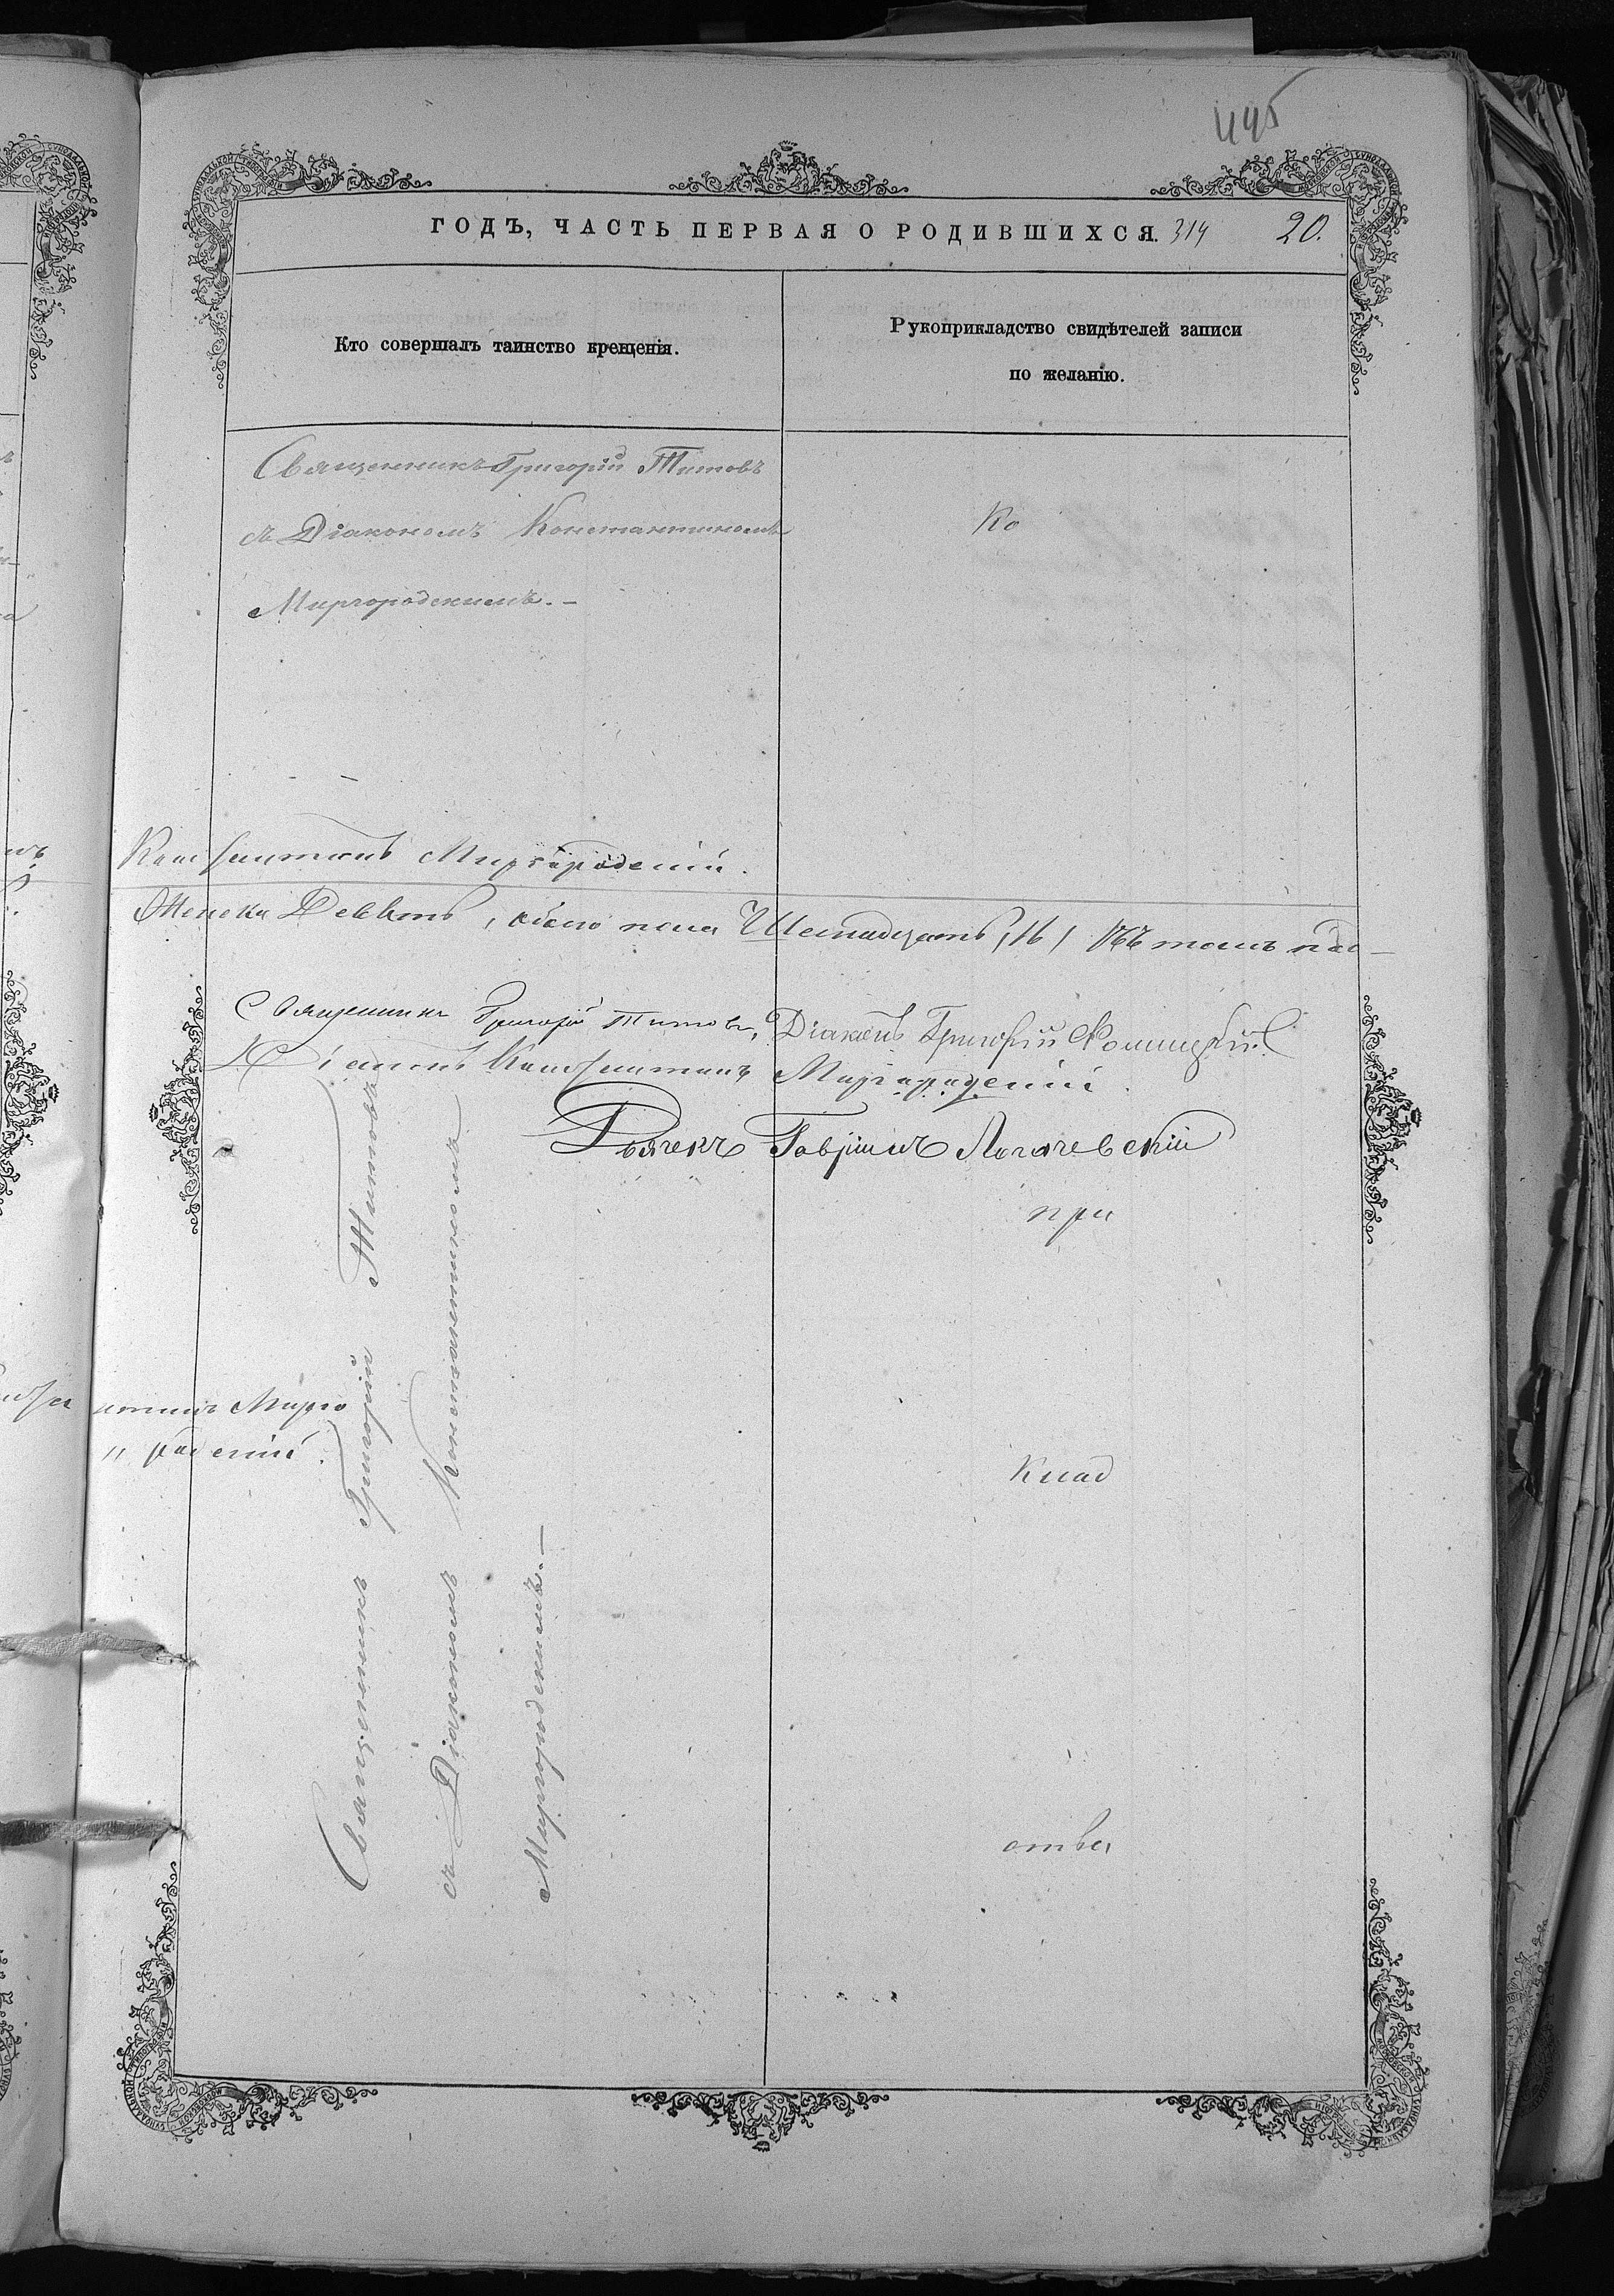 445
ГОДЪ, ЧАСТЬ ПЕРВАЯ О РОДИВШИХСЯ. 314 20.
Кто совершалъ таинство крещенія.
Рукоприкладство свидѣтелей записи
по желанію.
Священникъ Григорій Титовъ
съ Діакономъ Константиномъ
Миргородскимъ. –
Ко
Константинъ Миргородскій.
Женска Девять, обоего пола Шестнадцать, 16, Въ томъ
Священникъ Григорій Титовъ, Діаконъ Григорій
Діаконъ Константинъ Миргородскій.
Дьячекъ Гавріилъ Логачевскій
при
Священникъ Григорій Титовъ
съ Діакономъ Константиномъ
Миргородскимъ. –
нтинъ Мирго
„ родскій.
клад
ства